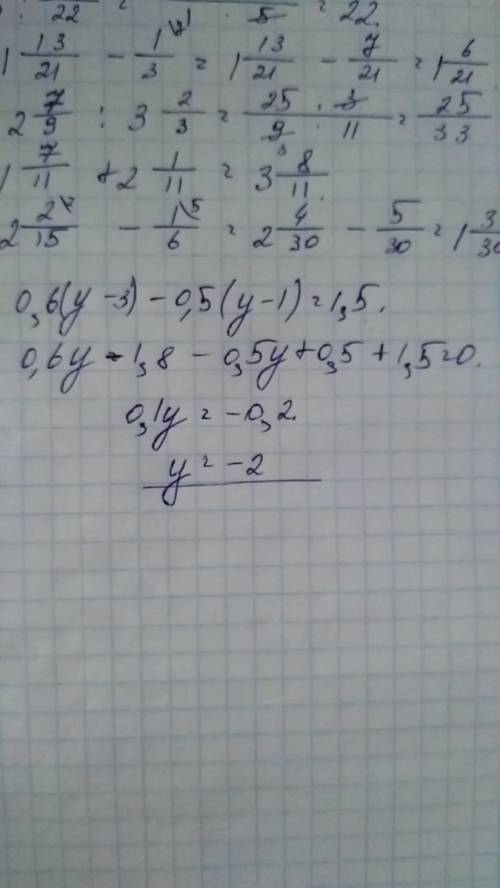 : 22 = · 5 = 22.
1 13/21 - 1/3 \7 = 1 13/21 - 7/21 = 1 6/21
2 7/9 : 3 2/3 = 25 · 3/9 · 11 = 25/33
1 7/11 + 2 1/11 = 3 8/11
2 2/15 \2 - 1/6 \5 = 2 4/30 - 5/30 = 1 3/30
0,6(y-3) - 0,5(y-1) = 1,5.
0,6y - 1,8 - 0,5y + 0,5 + 1,5 = 0.
0,1y = -0,2.
y = -2